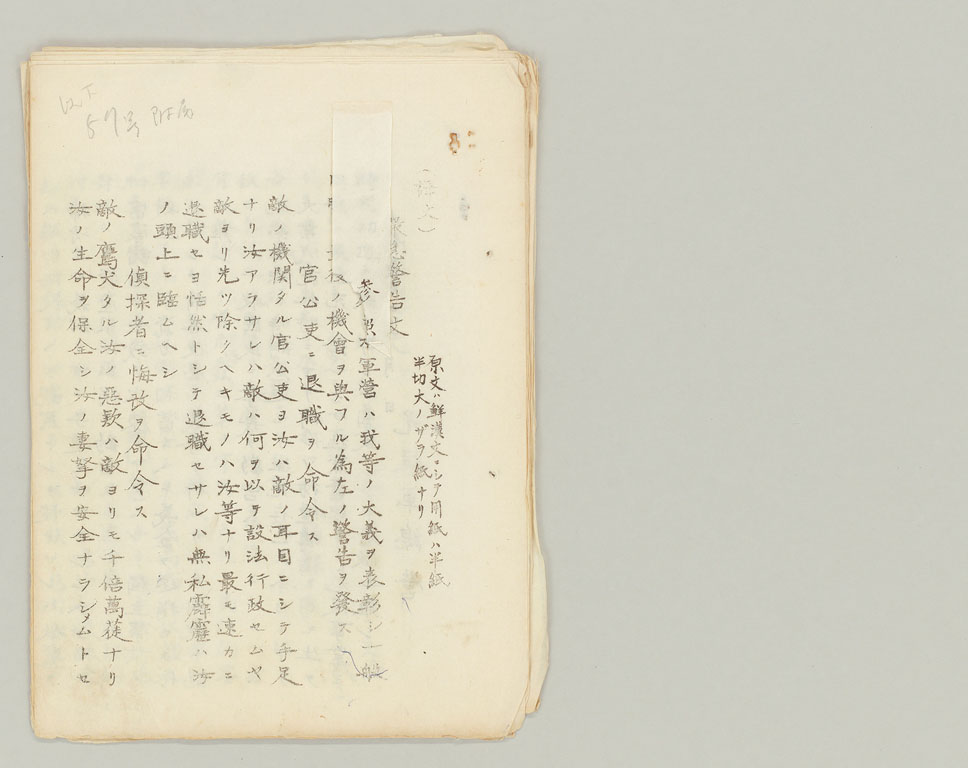 57号附属
（譯文）
警告文
原文ハ鮮漢文ニシテ用紙ハ半紙
半切大ノザラ紙ナリ
軍營ハ我等ノ大義ヲ表彰シ一般
最後ノ機會ヲ與フル為左ノ警告ヲ發ス
官公吏ニ退職ヲ命令ス
敵ノ機関タル官公吏ヨ汝ハ敵ノ耳目ニシテ手足
ナリ汝アラサレハ敵ハ何ヲ以テ設法行政セムヤ
敵ヨリ先ツ除クヘキモノハ汝等ナリ最モ速カニ
退職セヨ恬然トシテ退職セサレハ無私霹靂ハ汝
ノ頭上ニ臨ムヘシ
偵探者ニ悔改ヲ命令ス
敵ノ鷹犬タル汝ノ惡ハ敵ヨリモ千倍萬蓰ナリ
汝ノ生命ヲ保全シ汝ノ妻孥ヲ安全ナラシメムトセ